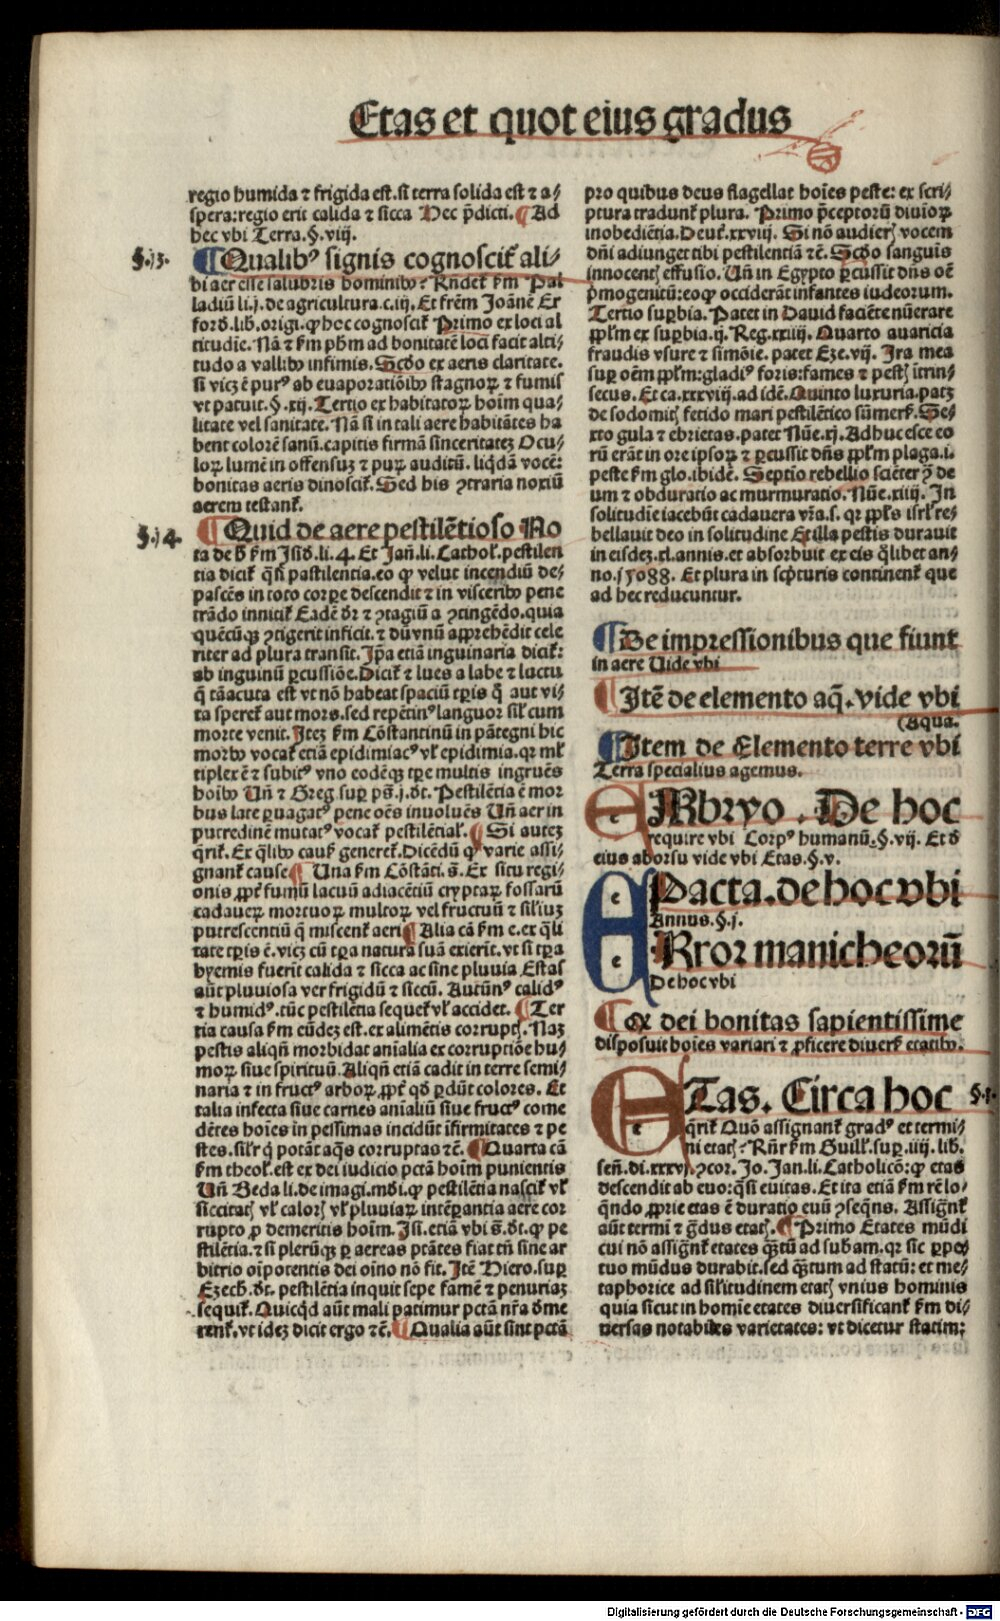 Etas et quot eius gradus
regio humida ⁊ frigida est. si terra solida est ⁊ a⸗
spera: regio erit calida ⁊ sicca Hec p̄dicti. ¶ Ad
hec vbi Terra. §. viij.
§. 13.
¶ Qualibꝰ signis cognoscit̃ ali⸗
bi aer esse salubris hominibꝰ? Rñdet̃ ẜm Pal
ladiũ li. j. de agricultura. c. iij. Et frẽm Joãnẽ Er
ford. lib. origi. ꝙ hoc cognoscit̃ Primo ex loci al
titudĩe. Nã ⁊ ẜm pħm ad bonitatẽ loci facit alti⸗
tudo a vallibꝰ infimis. Scḋo ex aeris claritate.
si vicꝫ ẽ purꝰ ab euaporatiõibꝰ stagnoꝝ ⁊ fumis
vt patuit. §. xij. Tertio ex habitatoꝝ hoĩm qua⸗
litate vel sanitate. Nã si in tali aere habitãtes ha
bent colorẽ sanũ. capitis firmã sinceritateꝫ Ocu⸗
loꝝ lumẽ in offensuꝫ ⁊ puꝝ auditũ. liq̇dã vocẽ:
bonitas aeris dinoscit̃. Sed his ꝯtraria noxiũ
aerem testant̃.
§. 14.
¶ Quid de aere pestilẽtioso No
ta de ḣ ẜm Isid. li. 4. Et Jañ. li. Cathol̃. pestilen
tia dicit̃ q̃si pastilentia. eo ꝙ velut incendiũ de⸗
pascẽs in toto corꝑe descendit ⁊ in visceribꝰ pene
trãdo innitit̃ Eadẽ dr̃ ⁊ ꝯtagiũ a ꝯtingẽdo. quia
quẽcũqꝫ ꝯtigerit inficit. ⁊ dũ vnũ apprehẽdit cele
riter ad plura transit. Ip̃a etiã inguinaria dicit̃:
ab inguinũ ꝑcussiõe. Dicit̃ ⁊ lues a labe ⁊ luctu
q̃ tã acuta est vt nõ habeat spaciũ tꝑis q̃ aut vi⸗
ta speret̃ aut mors. sed repẽtinꝰ languor sil̃ cum
morte venit. Iteꝫ ẜm Cõstantinũ in pãtegni hic
morbꝰ vocat̃ etiã epidimiacꝰ vl̃ epidimia. qꝛ ml̃
tiplex ẽ ⁊ subitꝰ vno eodẽqꝫ tꝑe multis ingruẽs
hoĩbꝰ Vñ ⁊ Greg. suꝑ ps̃. j. dt. Pestilẽtia ẽ mor
bus late ꝑuagatꝰ pene oẽs inuoluẽs Vñ aer in
putredinẽ mutatꝰ vocat̃ pestilẽtial̃. ¶ Si auteꝫ
q̃rit̃. Ex q̃libꝰ causꝭ generet̃. Dicẽdũ ꝙ varie assi⸗
gnant̃ cause ¶ Una ẜm Cõstãti. s̃. Ex situ regi⸗
onis ꝓpt̃ fumũ lacuũ adiacẽtiũ cryptaꝝ fossarũ
cadaueꝝ mortuoꝝ multoꝝ vel fructuũ ⁊ sil̃iuꝫ
putrescentiũ q̃ miscent̃ aeri ¶ Alia cã ẜm e. ex q̃li
tate tꝑis ẽ. vicꝫ cũ tꝑa naturã suã exierit. vt si tꝑa
hyemis fuerit calida ⁊ sicca ac sine pluuia Estas
aũt pluuiosa ver frigidũ ⁊ siccũ. Autũnꝰ calidꝰ
⁊ humidꝰ. tũc pestilẽtia sequet̃ vl̃ accidet. ¶ Ter
tia causa ẜm eũdeꝫ est. ex alimẽtis corruptꝭ. Naꝫ
pestis aliqñ morbidat anĩalia ex corruptiõe hu⸗
moꝝ siue spirituũ. Aliqñ etiã cadit in terre semi⸗
naria ⁊ in fructꝰ arboꝝ. ꝓpt̃ qd̃ ꝑdũt colores. Et
talia infecta siue carnes anĩaliũ siue fructꝰ come
dẽtes hoĩes in pessimas incidũt ĩfirmitates ⁊ pe
stes. sil̃r q̇ potãt aq̃s corruptas ⁊c̃. ¶ Quarta cã
ẜm theol̃. est ex dei iudicio pctã hoĩm punientis
Uñ Beda li. de imagi. mdi. ꝙ pestilẽtia nascit̃ vl̃
siccitatꝭ vl̃ calorꝭ vl̃ pluuiaꝝ intẽꝑantia aere cor
rupto ꝓ demeritis hoĩm. Isi. etiã vbi s̃. dt. ꝙ pe
stilẽtia. ⁊ si plerũqꝫ ꝑ aereas ptãtes fiat tñ sine ar
bitrio oĩpotentis dei oĩno nõ fit. Itẽ Hiero. suꝑ
Ezech. dt. pestilẽtia inquit sepe famẽ ⁊ penuriaꝫ
sequit̃. Quicq̇d aũt mali patimur pctã nr̃a ḋme
rent̃. vt ideꝫ dicit ergo ⁊c̃. ¶ Qualia aũt sint pctã
pro quibus deus flagellat hoĩes peste: ex scri⸗
ptura tradunt̃ plura. Primo p̃ceptorũ diuĩoꝝ
inobediẽtia. Deut̃. xxviij. Si nõ audierꝭ vocem
dñi adiunget tibi pestilentiã ⁊c̃. Scḋo sanguĩs
innocentꝭ effusio. Uñ in Egypto ꝑcussit dñs oẽ
p̃mogenitũ: eo ꝙ occiderãt infantes iudeorum.
Tertio suꝑbia. Patet in Dauid faciẽte nũerare
ppl̃m ex suꝑbia. ij. Reg. xxiiij. Quarto auaricia
fraudis vsure ⁊ simõie. patet Eze. vij. Ira mea
suꝑ oẽm ppl̃m: gladiꝰ foris: fames ⁊ pestꝭ ĩtrin⸗
secus. Et ca. xxxviij. ad idẽ. Quinto luxuria. patꝫ
de sodomitꝭ fetido mari pestilẽtico sũmersꝭ. Se⸗
xto gula ⁊ ebrietas. patet Nũe. xj. Adhuc esce eo
rũ erãt in ore ipsoꝝ ⁊ ꝑcussit dñs ppl̃m plaga. i.
peste ẜm glo. ibidẽ. Septĩo rebellio sciẽter ꝯ̃ de
um ⁊ obduratio ac murmuratio. Nũe. xiiij. In
solitudĩe iacebũt cadauera vr̃a. s. qꝛ ppl̃s isrl̃ re⸗
bellauit deo in solitudine Et illa pestis durauit
in eisdeꝫ. xl. annis. et absorbuit ex eis q̃libet an⸗
no. 15088. Et plura in scṗturis continent̃ que
ad hec reducuntur.
¶ De impressionibus que fiunt
in aere Uide vbi
¶ Itẽ de elemento aq̃. vide vbi
(Aqua.
¶ Item de Elemento terre vbi
Terra specialius agemus.
EMbryo. De hoc
require vbi Corpꝰ humanũ. §. vij. Et ḋ
eius aborsu vide vbi Etas. §. v.
EPacta. de hoc vbi
Annus. §. j.
ERror manicheorũ
De hoc vbi
¶ ex dei bonitas sapientissime
disposuit hoĩes variari ⁊ ꝓficere diuersꝭ etatibꝰ.
ETas. Circa hoc
§. 1.
q̃rit̃ Quõ assignant̃ gradꝰ et termi⸗
ni etatꝭ? Rñr ẜm Guill̃. suꝑ. iiij. lib.
señ. di. xxxvj. ꝯcor. Jo. Jan. li. Catholicõ: ꝙ etas
descendit ab euo: q̃si euitas. Et ita etiã ẜm rẽ lo⸗
q̃ndo ꝓprie etas ẽ duratio euũ ꝯseq̃ns. Assig̃nt̃
aũt termĩ ⁊ g̃dus etatꝭ. ¶ Primo Etates mũdi
cui nõ assig̃nt̃ etates q̃ꝫtũ ad subam. qꝛ sic ꝑpe⸗
tuo mũdus durabit. sed q̃ꝫtum ad statũ: et me⸗
taphorice ad sil̃itudinem etatꝭ vnius hominis
quia sicut in homĩe etates diuersificant̃ ẜm di⸗
uersas notabiles varietates: vt dicetur statim:
Digitalisierung gefördert durch die Deutsche Forschungsgemeinschaft - DFG